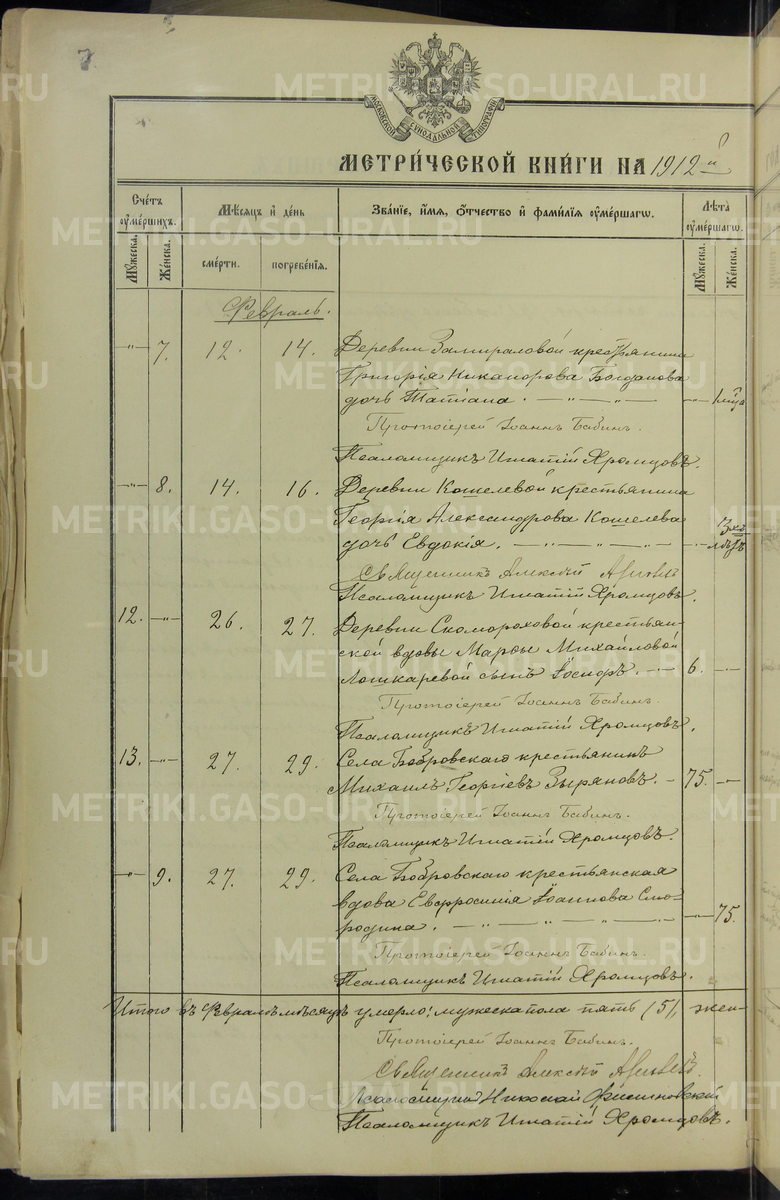 7
МОСКОВСКОЙ СУНОДАЛЬНОЙ ТИПОГРАФІИ
МЕТРИ́ЧЕСКОЙ КНИ́ГИ НА 1912 й
Счетъ оумершихъ.
Мѣсяцъ и день
Званїе, имя, отчество и фамилїя оумершагѡ.
Лѣта оумершагѡ.
Мужеска. Женска.
смерти. погребенїя.
Мужеска. Женска.
Февраль.
—"— 7. 12. 14. Деревни Замираловой крестьянина
Григорія Никанорова Богданова
дочь Татіана. — " — " — —"— 1 мѣца
Протоіерей Іоаннъ Бабинъ.
Псаломщикъ Игнатій Хромцовъ.
—"— 8. 14. 16. Деревни Кошелевой крестьянина
Георгія Александрова Кошелева
дочь Евдокія. — " — " — —"— 3хъ лѣтъ
Священникъ Алексѣй
Псаломщикъ Игнатій Хромцовъ.
12. —"— 26. 27. Деревни Скомороховой крестьян-
ской вдовы Марѳы Михайловой
Лошкаревой сынъ Іосифъ. —"— 6. —"—
Протоіерей Іоаннъ Бабинъ.
Псаломщикъ Игнатій Хромцовъ.
13. —"— 27. 29. Села Бобровскаго крестьянинъ
Михаилъ Георгіевъ Зыряновъ. — 75. —"—
Протоіерей Іоаннъ Бабинъ.
Псаломщикъ Игнатій Хромцовъ.
—"— 9. 27. 29. Села Бобровскаго крестьянская
вдова Евфросинія Іоаннова Смо-
родина. — " — " — " — —"— 75.
Протоіерей Іоаннъ Бабинъ.
Псаломщикъ Игнатій Хромцовъ.
Итого въ Февралѣ мѣсяцѣ умерло: мужеска пола пять (5), жен-
Протоіерей Іоаннъ Бабинъ.
Священникъ Алексѣй
Николай
Псаломщикъ Игнатій Хромцовъ.
METRIKI.GASO-URAL.RU